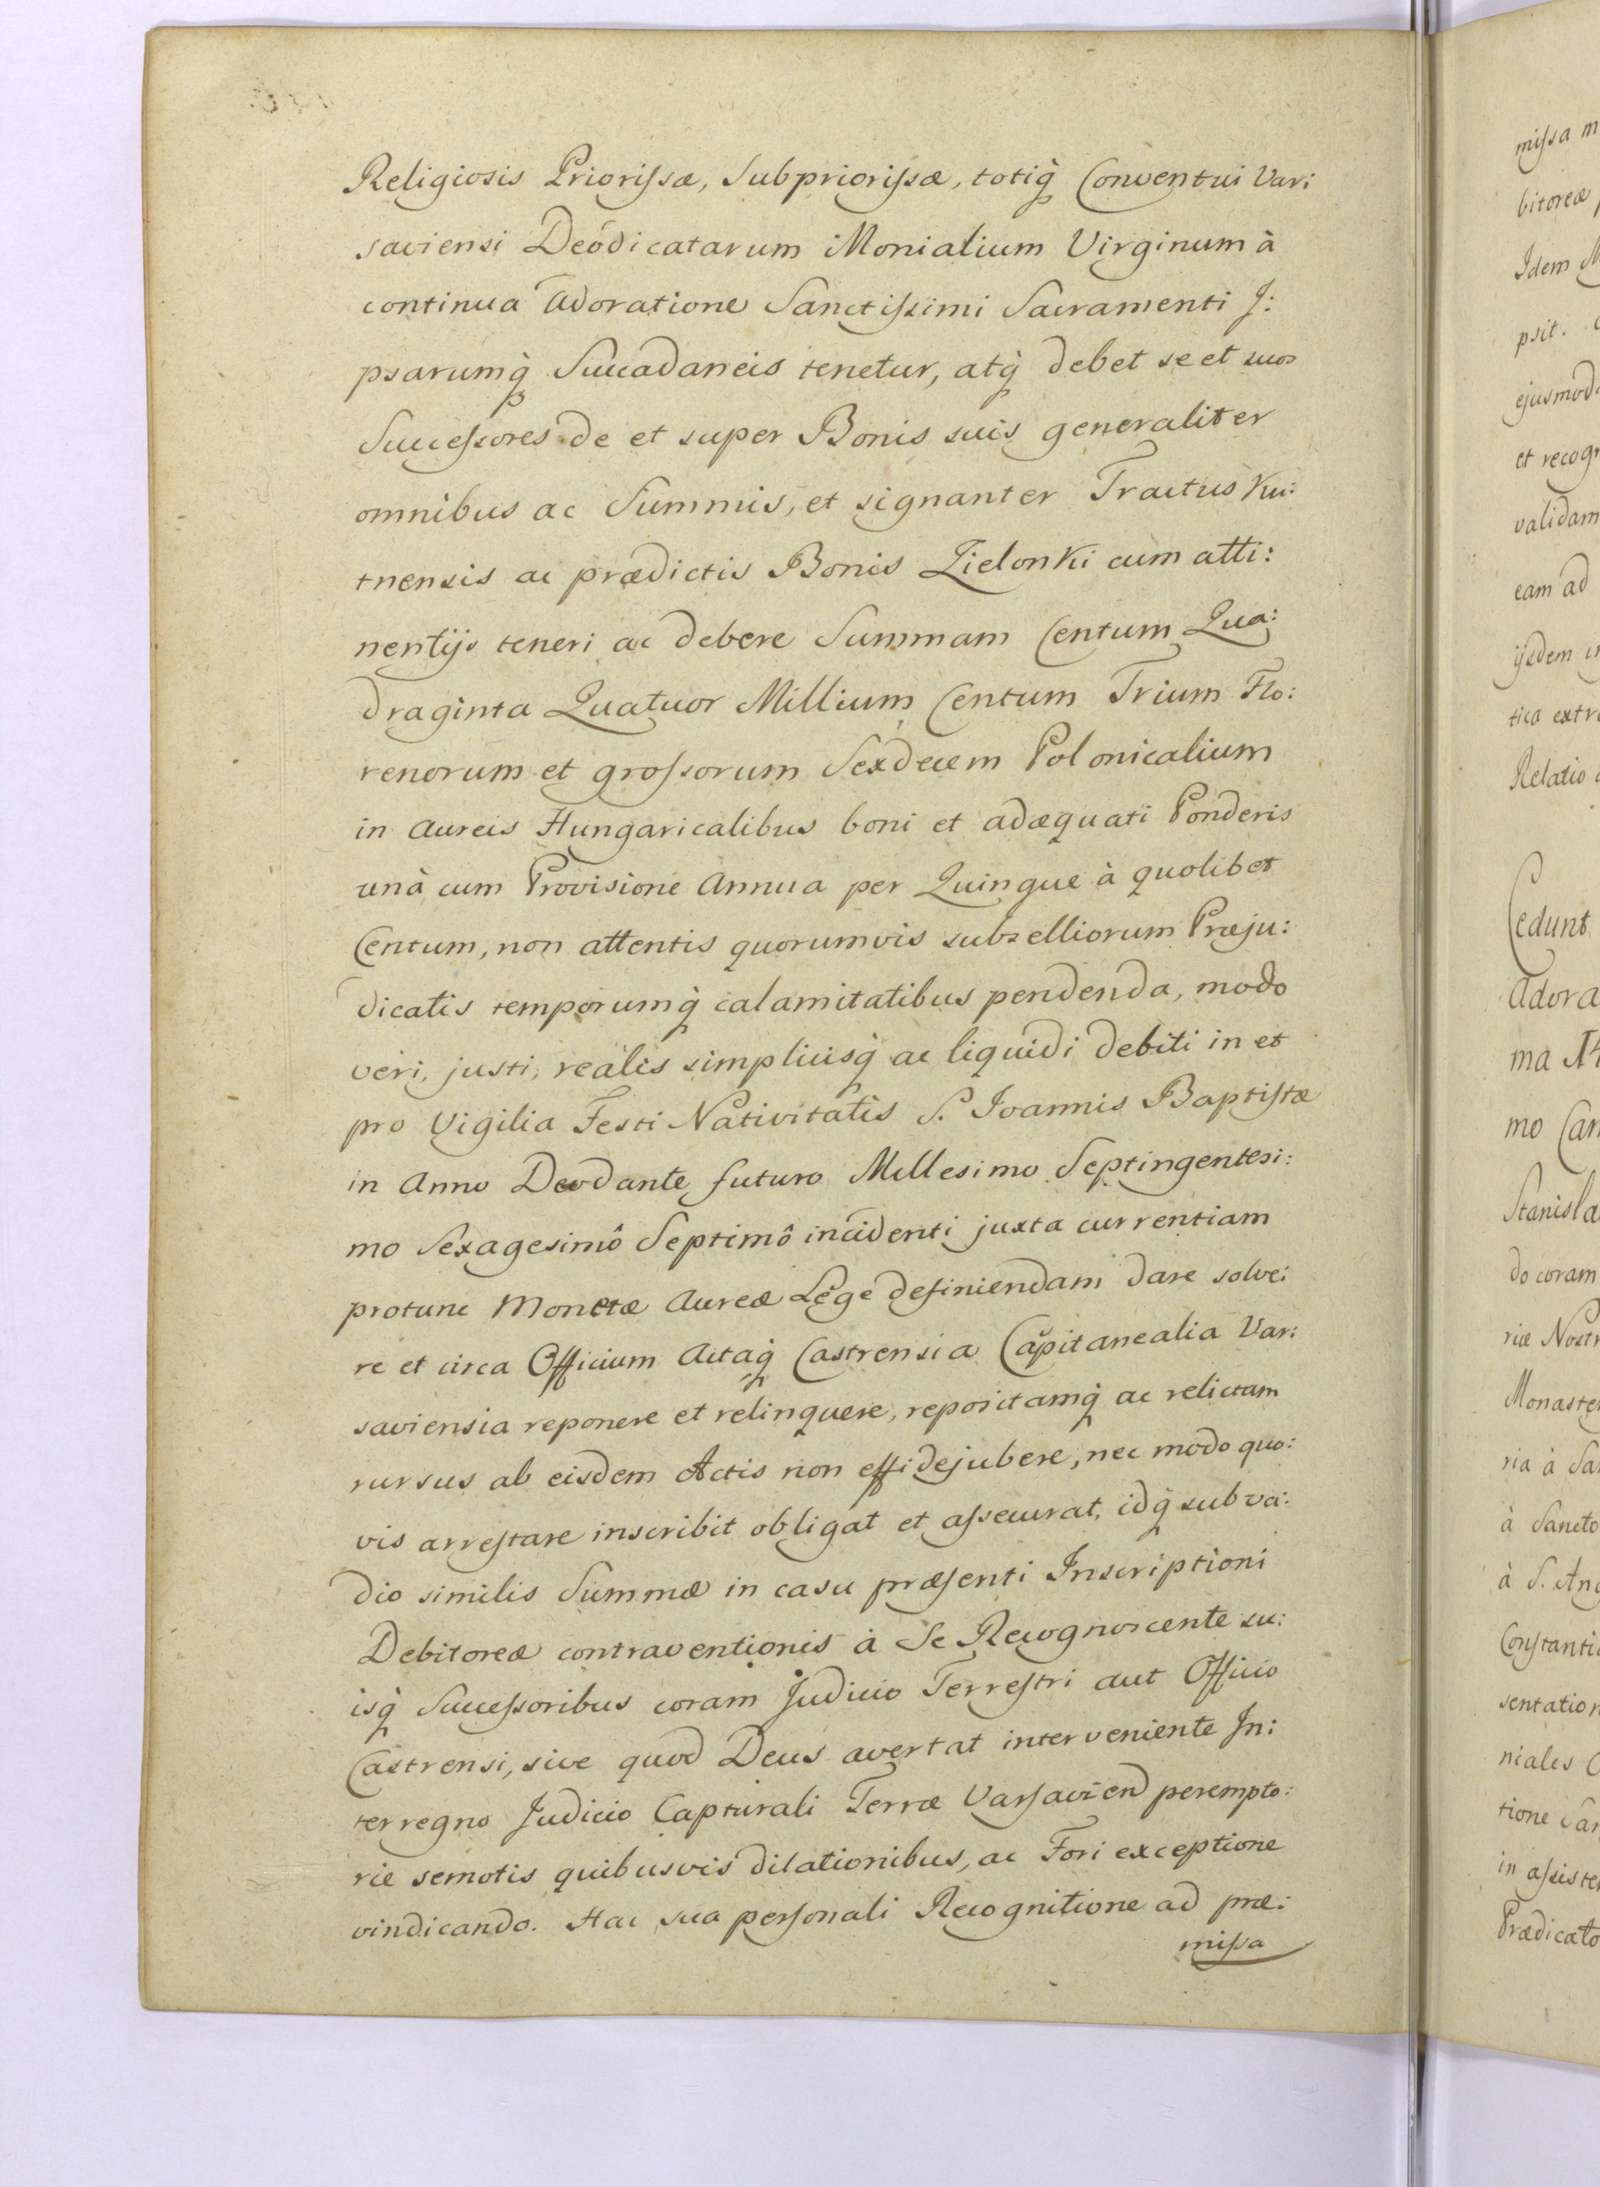 Religiosis Priorissæ, Subpriorissæ, totiq̀ Conventui Var:
saviensi Deódicatarum Monialium Virginum à
continua Adoratione Sanctissimi Sacramenti J:
psarumq̀ Succadaneis tenetur, atq̀ debet se et suos
Successores de et super Bonis suis generaliter
omnibus ac Summis, et signanter Tractus Ku:
tnensis ac prædictis Bonis Zielonki cum atti:
nentijs teneri ac debere Summam Centum Qua:
draginta Quatuor Millium Centum Trium Flo:
renorum et grossorum Sexdecem Polonicalium
in Aureis Hungaricalibus boni et adæquati Ponderis
unà cum Provisione Annua per Quinque à quolibet
Centum, non attentis quorumvis subselliorum Præju:
dicatis temporumq̀ calamitatibus pendenda, modo
veri, justi, realis simpliusq̀ ac liquidi debiti in et
pro Vigilia Festi Nativitatis S. Joannis Baptistæ
in Anno Deodante futuro Millesimo Septingentesi:
mo Sexagesimô Septimô incidenti juxta currentiam
protunc Monetæ Aureæ Lege definiendam dare solve:
re et circa Officium Actaq̀ Castrensia Capitanealia Var:
saviensia reponere et relinquere, repositamq̀ ac relictam
rursus ab eisdem Actis non effidejubere, nec modo quo:
vis arrestare inscribit obligat et assecurat, idq̀ sub va:
dio similis Summæ in casu præsenti Inscriptioni
Debitoreæ contraventionis à Se Recognoscente su:
isq̀ Successoribus coram Judicio Terrestri aut Officio
Castrensi, sive quod Deus avertat interveniente In:
terregno Judicio Capturali Terræ Varsavien perempto:
rie semotis quibusvis dilationibus, ac Fori exceptione
vindicando. Hac sua personali Recognitione ad præ:
missa
missa m
bitoreæ
Idem M
psit.
ejusmod
et recogn
validam
eam ad
ijsdem in
tica extr
Relatio
Cedunt
Adora
ma
mo Can
Stanisla
do coram
riæ Nostr
Monaste
ria à Sa
à Sancto
à S. Ang
Constanti
sentation
niales C
tione San
in assiste
Prædicato